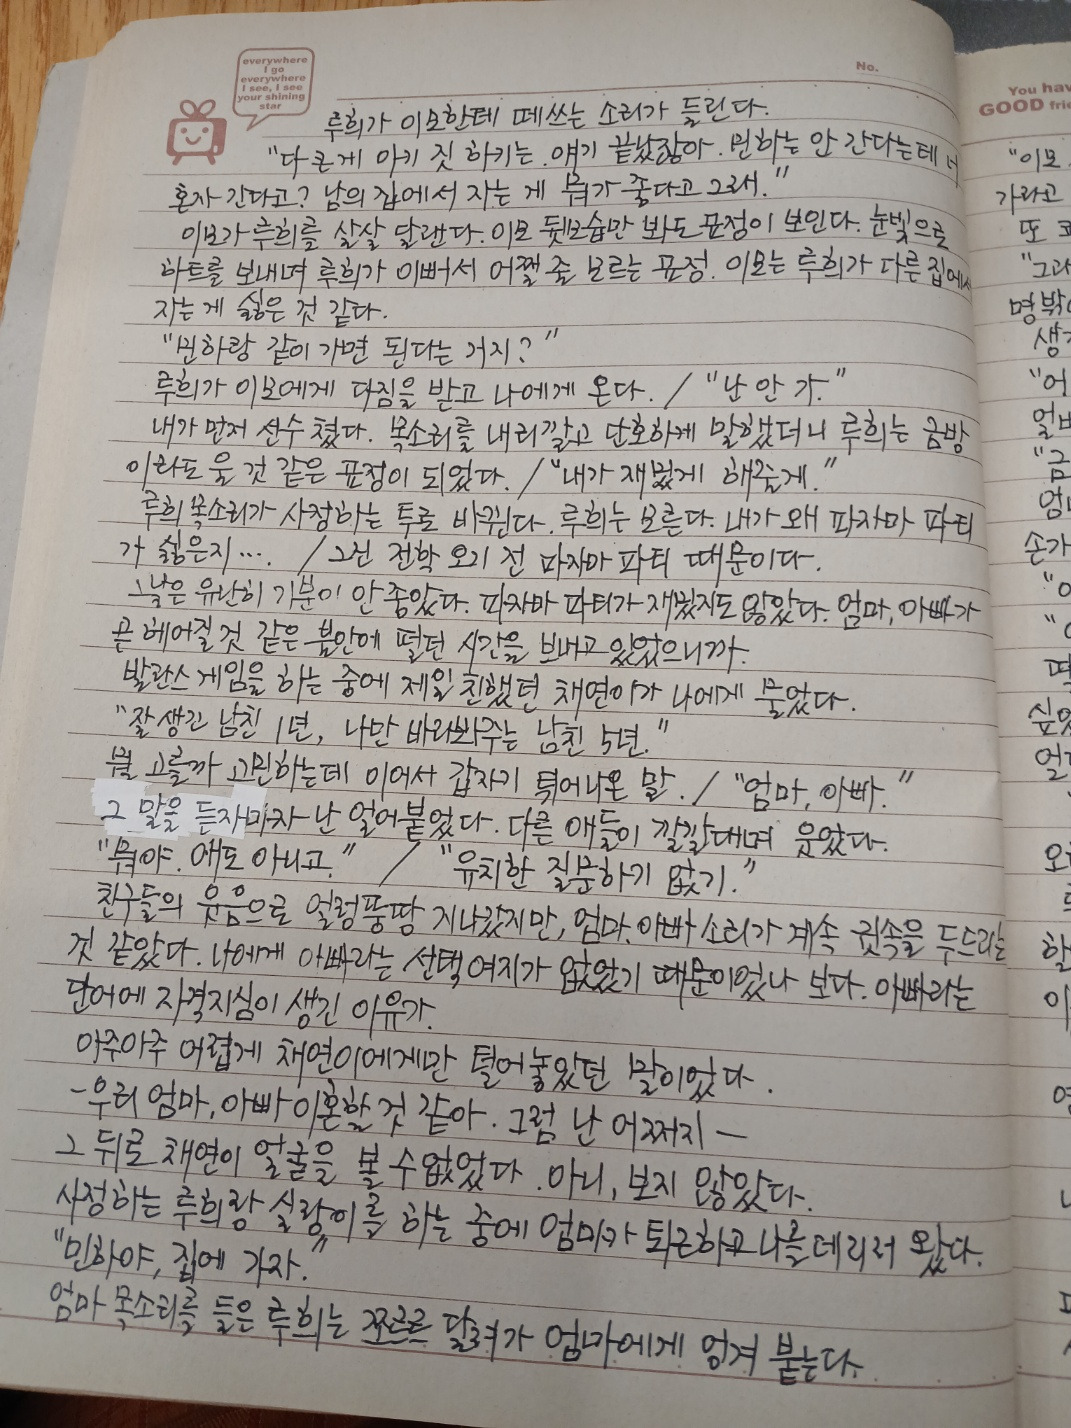 everywhere
I go
everywhere
I see, I see
your shining
star
No.
루희가 이모한테 떼쓰는 소리가 들린다.
"다 큰 게 아기 짓 하기는. 얘기 끝났잖아. 민하는 안 간다는데 너
혼자 간다고? 남의 집에서 자는 게 뭐가 좋다고 그래."
이모가 루희를 살살 달랜다. 이모 뒷모습만 봐도 표정이 보인다. 눈빛으로
하트를 보내며 루희가 이뻐서 어쩔 줄 모르는 표정. 이모는 루희가 다른 집에서
자는 게 싫은 것 같다.
"민하랑 같이 가면 된다는 거지?"
루희가 이모에게 다짐을 받고 나에게 온다. / "난 안 가."
내가 먼저 선수 쳤다. 목소리를 내리깔고 단호하게 말했더니 루희는 금방
이라도 울 것 같은 표정이 되었다. / "내가 재밌게 해줄게."
루희 목소리가 사정하는 투로 바뀐다. 루희는 모른다. 내가 왜 파자마 파티
가 싫은지... / 그건 전학 오기 전 파자마 파티 때문이다.
그날은 유난히 기분이 안 좋았다. 파자마 파티가 재밌지도 않았다. 엄마, 아빠가
곧 헤어질 것 같은 불안에 떨던 시간을 보내고 있었으니까.
발란스 게임을 하는 중에 제일 친했던 채연이가 나에게 물었다.
"잘생긴 남친 1년, 나만 바라봐주는 남친 5년."
뭘 고를까 고민하는데 이어서 갑자기 튀어나온 말. / "엄마, 아빠."
그 말을 듣자마자 난 얼어붙었다. 다른 애들이 깔깔대며 웃었다.
"뭐야. 애도 아니고." / "유치한 질문하기 없기."
친구들의 웃음으로 얼렁뚱땅 지나갔지만, 엄마, 아빠 소리가 계속 귓속을 두드리는
것 같았다. 나에게 아빠라는 선택 여지가 없었기 때문이었나 보다. 아빠라는
단어에 자격지심이 생긴 이유가.
아주아주 어렵게 채연이에게만 털어놓았던 말이었다.
-우리 엄마, 아빠 이혼할 것 같아. 그럼 난 어쩌지-
그 뒤로 채연이 얼굴을 볼 수 없었다. 아니, 보지 않았다.
사정하는 루희랑 실랑이를 하는 중에 엄마가 퇴근하고 나를 데리러 왔다.
"민하야, 집에 가자."
엄마 목소리를 들은 루희는 쪼르르 달려가 엄마에게 엉겨 붙는다.
You have
GOOD
"이모
가라고
또
"그래
명
"어
"금
손가